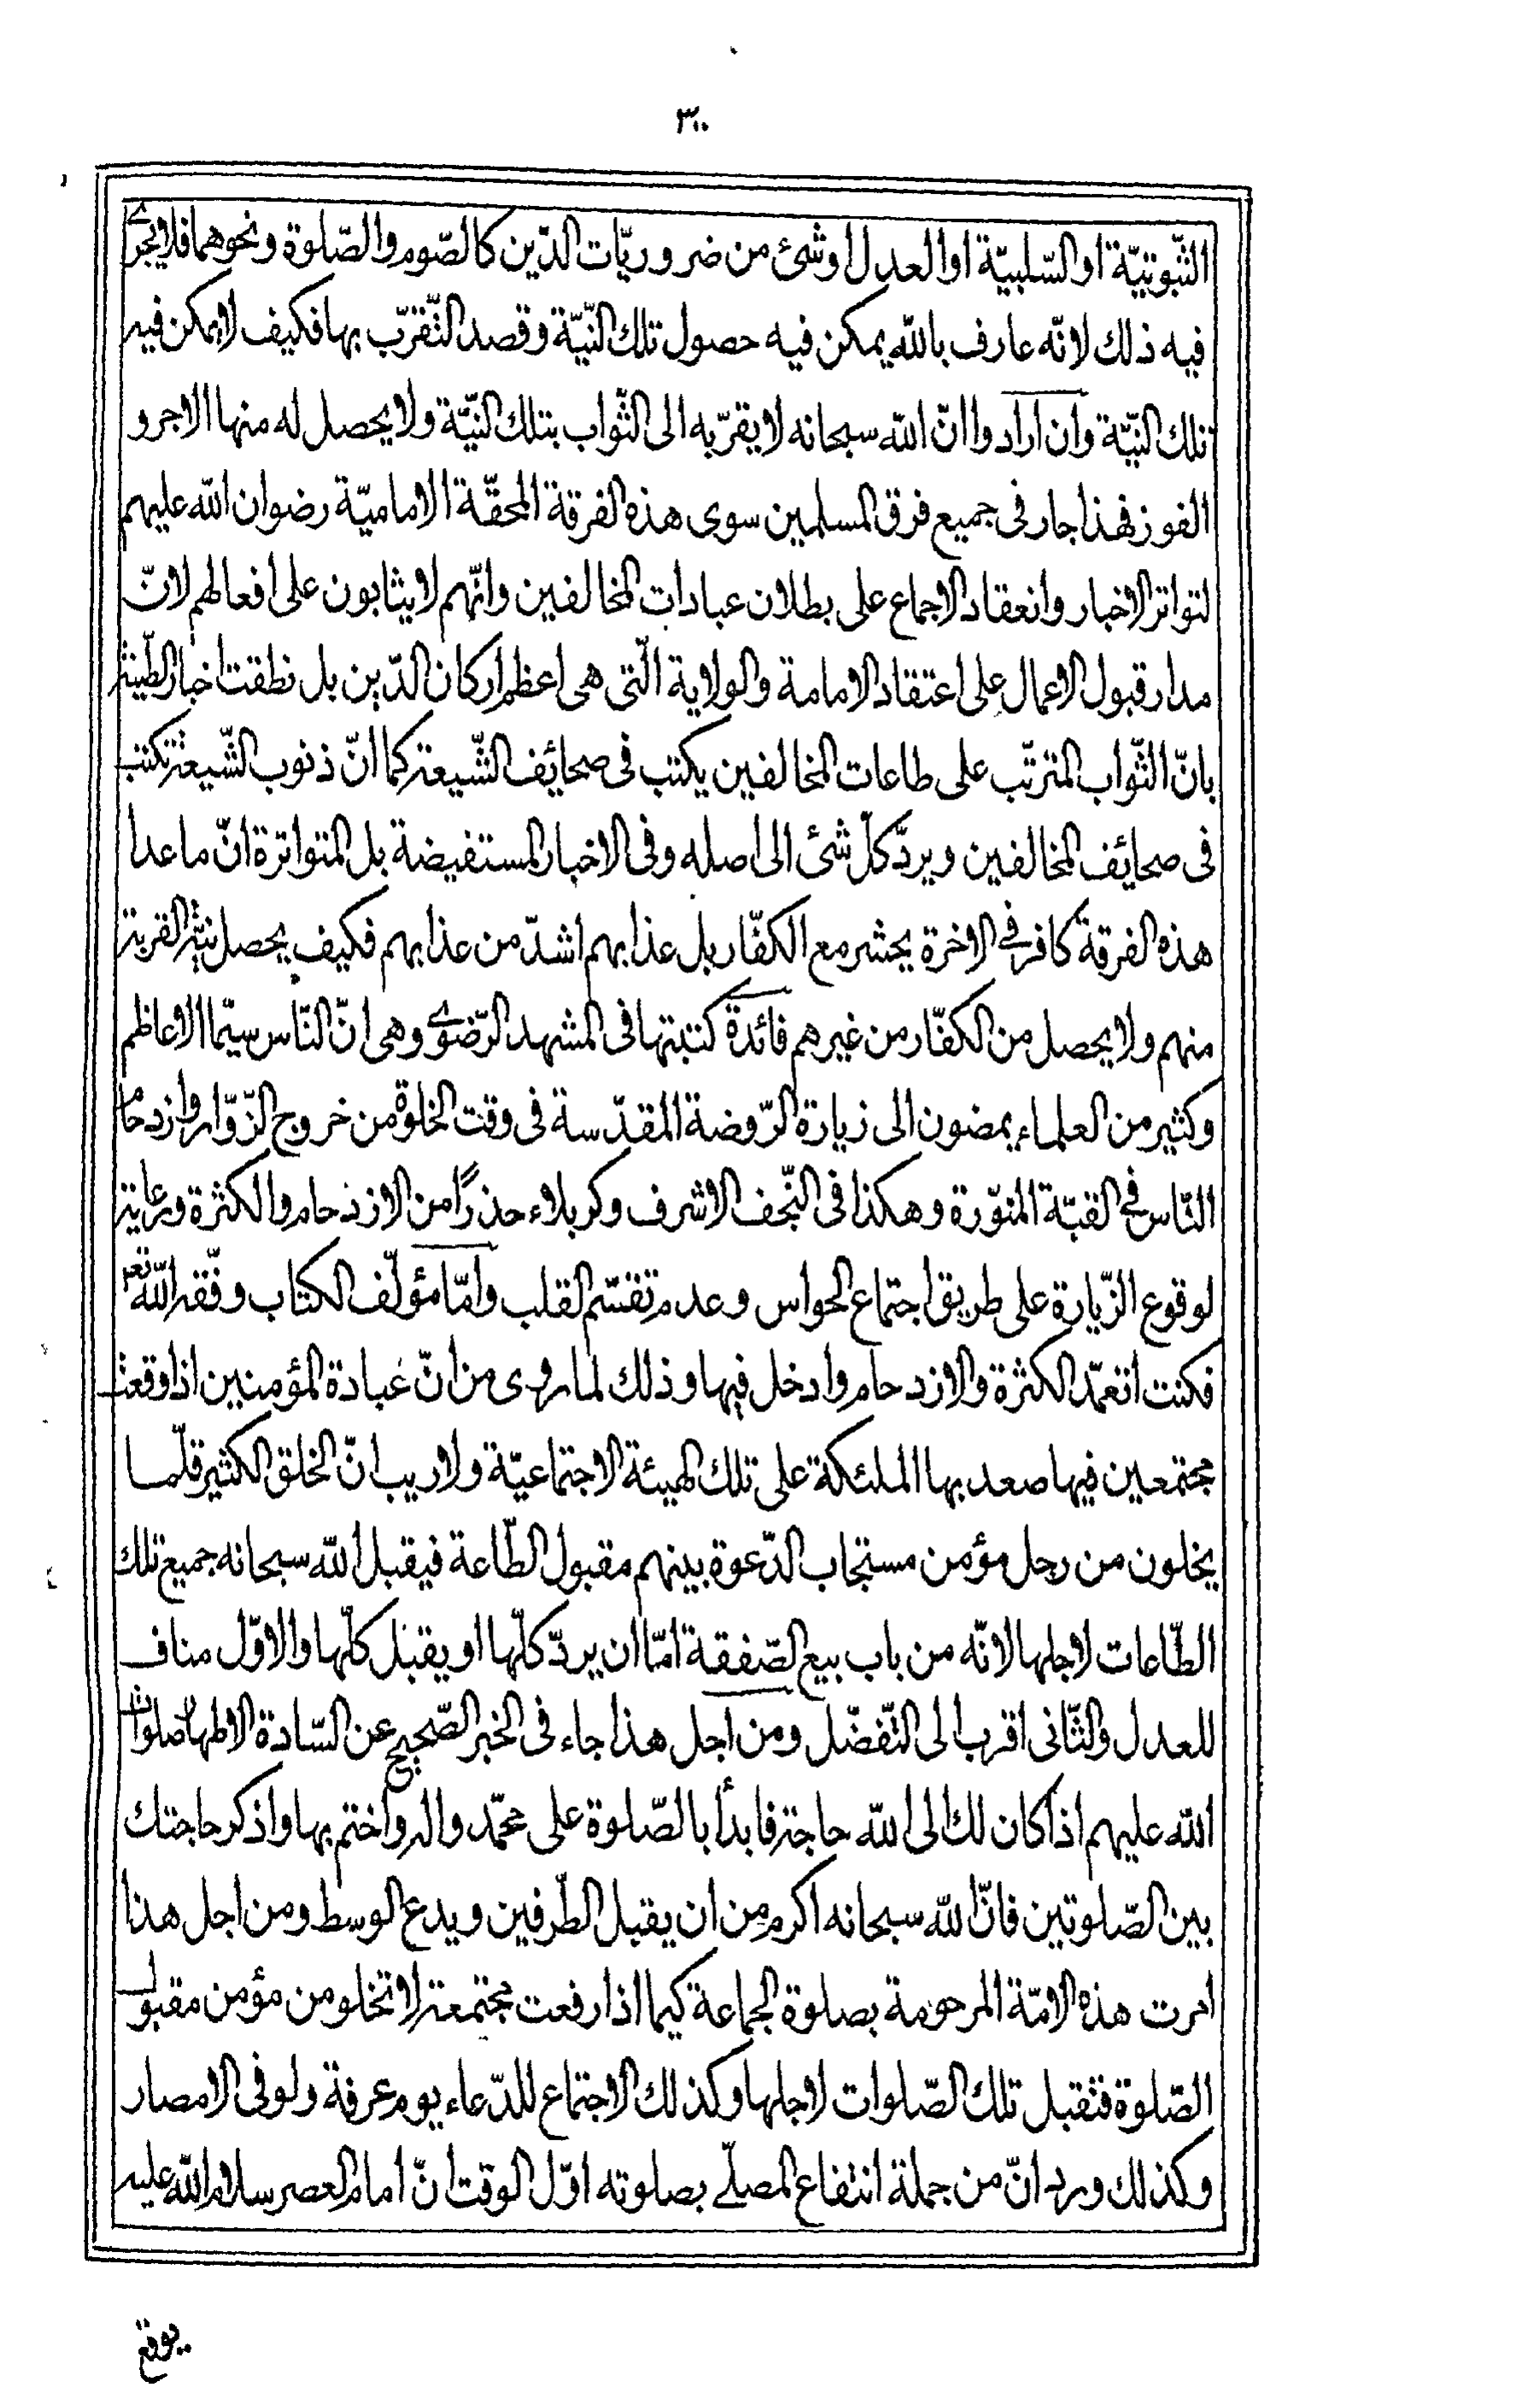 ٣٠٠
الثّبوتيّة او السّلبيّة او العدل او شئ من ضروريّات الدّين كالصّوم والصّلوة ونحوهما فلا يجرى
فيه ذلك لانّه عارف بالله يمكن فيه حصول تلك النّيّة وقصد التّقرّب بها فكيف لا يمكن فيه
تلك النيّة وان ارادوا انّ الله سبحانه لا يقرّبه الى الثّواب بتلك النيّة ولا يحصل له منها الاجر و
الفوز فهذا جار فى جميع فرق المسلمين سوى هذه الفرقة المحقّة الاماميّة رضوان الله عليهم
لتواتر الاخبار وانعقاد الاجماع على بطلان عبادات المخالفين وانّهم لا يثابون على افعالهم لانّ
مدار قبول الاعمال على اعتقاد الامامة والولاية الّتى هى اعظم اركان الدّين بل نطقت اخبار الطّينة
بانّ الثّواب المترتّب على طاعات المخالفين يكتب فى صحايف الشّيعة كما انّ ذنوب الشّيعة تكتب
فى صحايف المخالفين ويردّ كلّ شئ الى اصله وفى الاخبار المستفيضة بل المتواترة انّ ما عدا
هذه الفرقة كافر فى الاخرة يحشر مع الكفّار بل عذابهم اشدّ من عذابهم فكيف يحصل نيّة القربة
منهم ولا يحصل من الكفّار من غيرهم فائدة كتبتها فى المشهد الرّضوى وهى انّ النّاس سيّما الاعاظم
وكثير من العلماء يمضون الى زيارة الرّوضة المقدّسة فى وقت الخلوة من خروج الزّوّار وازدحام
النّاس فى القبّة المنوّرة وهكذا فى النّجف الاشرف وكربلاء حذرًا من الازدحام والكثرة ورعاية
لوقوع الزّيارة على طريق اجتماع الحواس وعدم تقسّم القلب وامّا مؤلّف الكتاب وفّقه الله تعر
فكنت اتعمّد الكثرة والازدحام وادخل فيها وذلك لما روى من انّ عبادة المؤمنين اذا وقعت
مجتمعين فيها صعد بها الملئكة على تلك الهيئة الاجتماعيّة ولا ريب انّ الخلق الكثير قلّما
يخلون من رجل مؤمن مستجاب الدّعوة بينهم مقبول الطّاعة فيقبل الله سبحانه جميع تلك
الطّاعات لاجلها لانّه من باب بيع الصّفقة امّا ان يردّ كلّها او يقبل كلّها والاوّل مناف
للعدل والثّانى اقرب الى التّفضّل ومن اجل هذا جاء فى الخبر الصّحيح عن السّادة الاطهار صلوات
الله عليهم اذا كان لك الى الله حاجة فابدأ بالصّلوة على محمّد واله واختم بها واذكر حاجتك
بين الصّلوتين فانّ الله سبحانه اكرم من ان يقبل الطّرفين ويدع الوسط ومن اجل هذا
امرت هذه الامّة المرحومة بصلوة الجماعة كيما اذا رفعت مجتمعة لا تخلو من مؤمن مقبول
الصّلوة فتقبل تلك الصّلوات لاجلها وكذلك الاجتماع للدّعاء يوم عرفة ولو فى الامصار
وكذلك ورد انّ من جملة انتفاع المصلّى بصلوته اوّل الوقت انّ امام العصر سلام الله عليه
يوقع